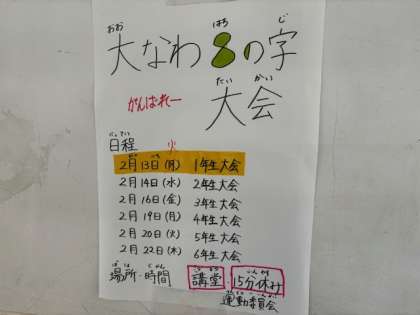 おお はち じ
大なわ 8の字
たい かい
がんばれー 大会
にってい
日程 火
2月13日(月) 1年生大会
2月14日(水) 2年生大会
2月16日(金) 3年生大会
2月19日(月) 4年生大会
2月20日(火) 5年生大会
2月22日(木) 6年生大会
場所・時間 講堂・15分休み
運動委員会